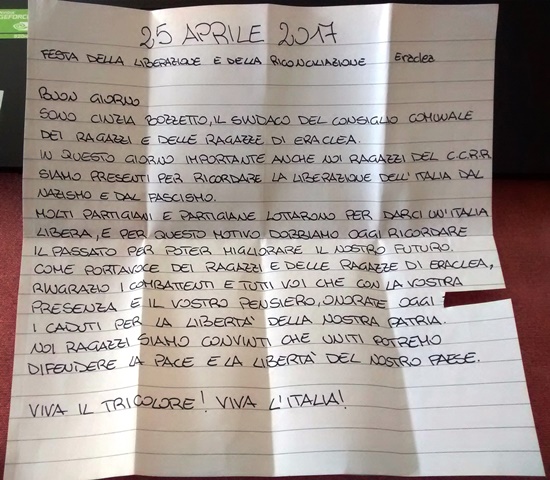 25 APRILE 2017
FESTA DELLA LIBERAZIONE E DELLA RICONCILIAZIONE Eraclea
BUON GIORNO
SONO CINZIA BOZZETTO, IL SINDACO DEL CONSIGLIO COMUNALE
DEI RAGAZZI E DELLE RAGAZZE DI ERACLEA.
IN QUESTO GIORNO IMPORTANTE ANCHE NOI RAGAZZI DEL C.C.R.R
SIAMO PRESENTI PER RICORDARE LA LIBERAZIONE DELL'ITALIA DAL
NAZISMO E DAL FASCISMO.
MOLTI PARTIGIANI E PARTIGIANE LOTTARONO PER DARCI UN'ITALIA
LIBERA, E PER QUESTO MOTIVO DOBBIAMO OGGI RICORDARE
IL PASSATO PER POTER MIGLIORARE IL NOSTRO FUTURO.
COME PORTAVOCE DEI RAGAZZI E DELLE RAGAZZE DI ERACLEA,
RINGRAZIO I COMBATTENTI E TUTTI VOI CHE CON LA VOSTRA
PRESENZA E IL VOSTRO PENSIERO, ONORATE OGGI
I CADUTI PER LA LIBERTA' DELLA NOSTRA PATRIA.
NOI RAGAZZI SIAMO CONVINTI CHE UNITI POTREMO
DIFENDERE LA PACE E LA LIBERTA' DEL NOSTRO PAESE.
VIVA IL TRICOLORE! VIVA L'ITALIA!